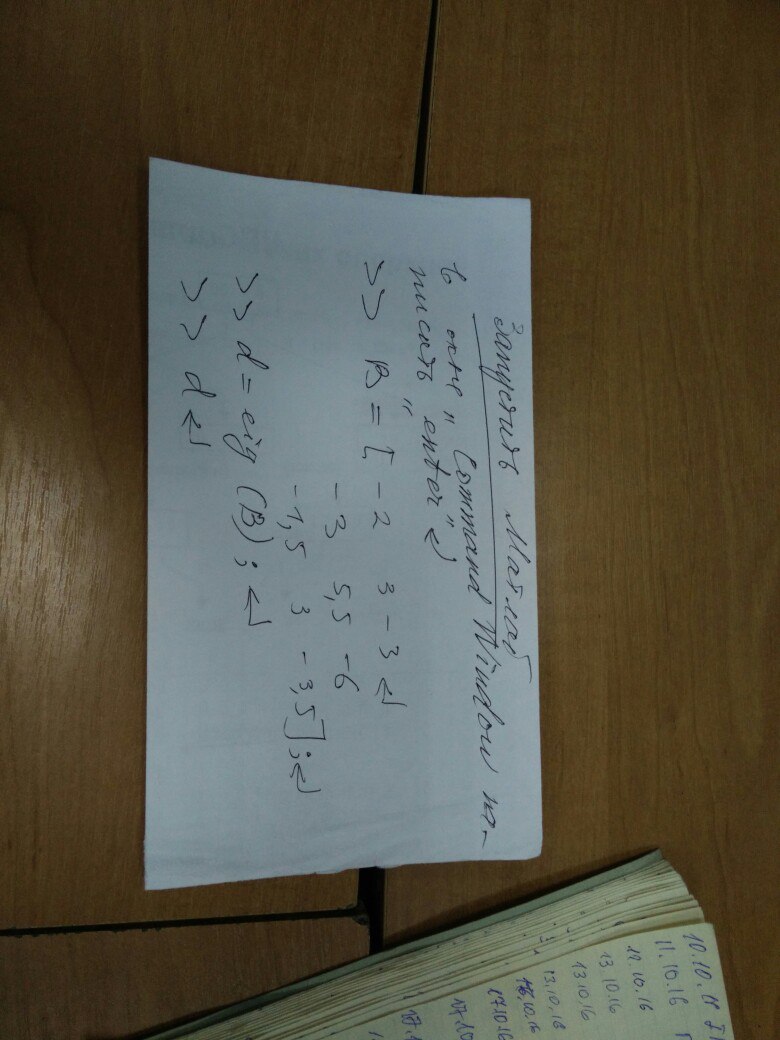 Запустить Матлаб
в окне „Command Window на-
писать „enter“ ↵
>> B = [ -2 3 -3 ↵
-3 5,5 -6
-1,5 3 -3,5 ] ; ↵
>> d = eig (B) ; ↵
>> d ↵
10.10.16
11.10.16
12.10.16
13.10.16
13.10.16
13.10.16
17.10.16